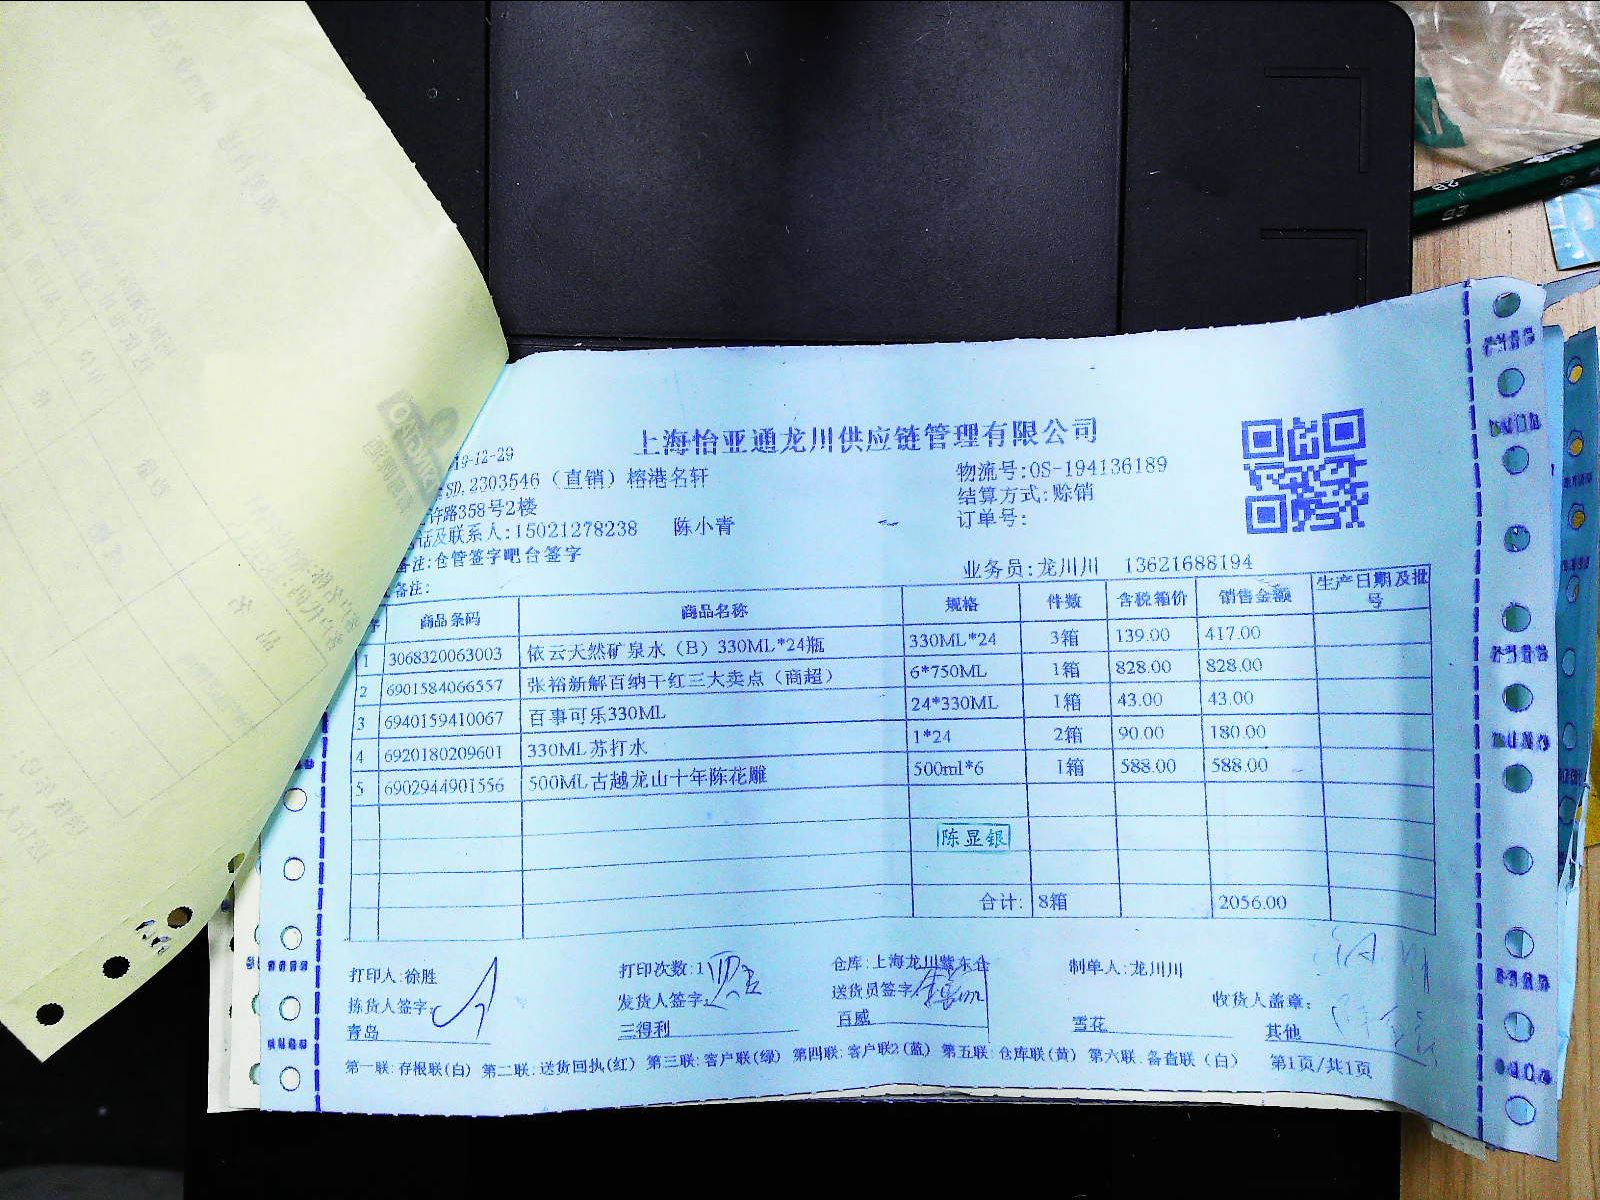 上海怡亚通龙川供应链管理有限公司
19-12-29
SD.2303546（直销）榕港名轩
物流号:OS-194136189
许路358号2楼
结算方式:赊销
话及联系人:15021278238 陈小青
订单号:
备注:仓管签字吧台签字
业务员:龙川川 13621688194
备注:
商品条码 商品名称 规格 件数 含税箱价 销售金额 生产日期及批号
1 3068320063003 依云天然矿泉水（B）330ML*24瓶 330ML*24 3箱 139.00 417.00
2 6901584066557 张裕新解百纳干红三大卖点（商超） 6*750ML 1箱 828.00 828.00
3 6940159410067 百事可乐330ML 24*330ML 1箱 43.00 43.00
4 6920180209601 330ML苏打水 1*24 2箱 90.00 180.00
5 6902944901556 500ML古越龙山十年陈花雕 500ml*6 1箱 588.00 588.00
陈显银
合计: 8箱 2056.00
打印人:徐胜 打印次数:1 仓库:上海龙川冀东仓 制单人:龙川川
拣货人签字: 发货人签字: 送货员签字 收货人盖章:
青岛 三得利 百威 雪花 其他
第一联:存根联(白) 第二联:送货回执(红) 第三联:客户联(绿) 第四联:客户联2(蓝) 第五联:仓库联(黄) 第六联:备查联（白） 第1页/共1页